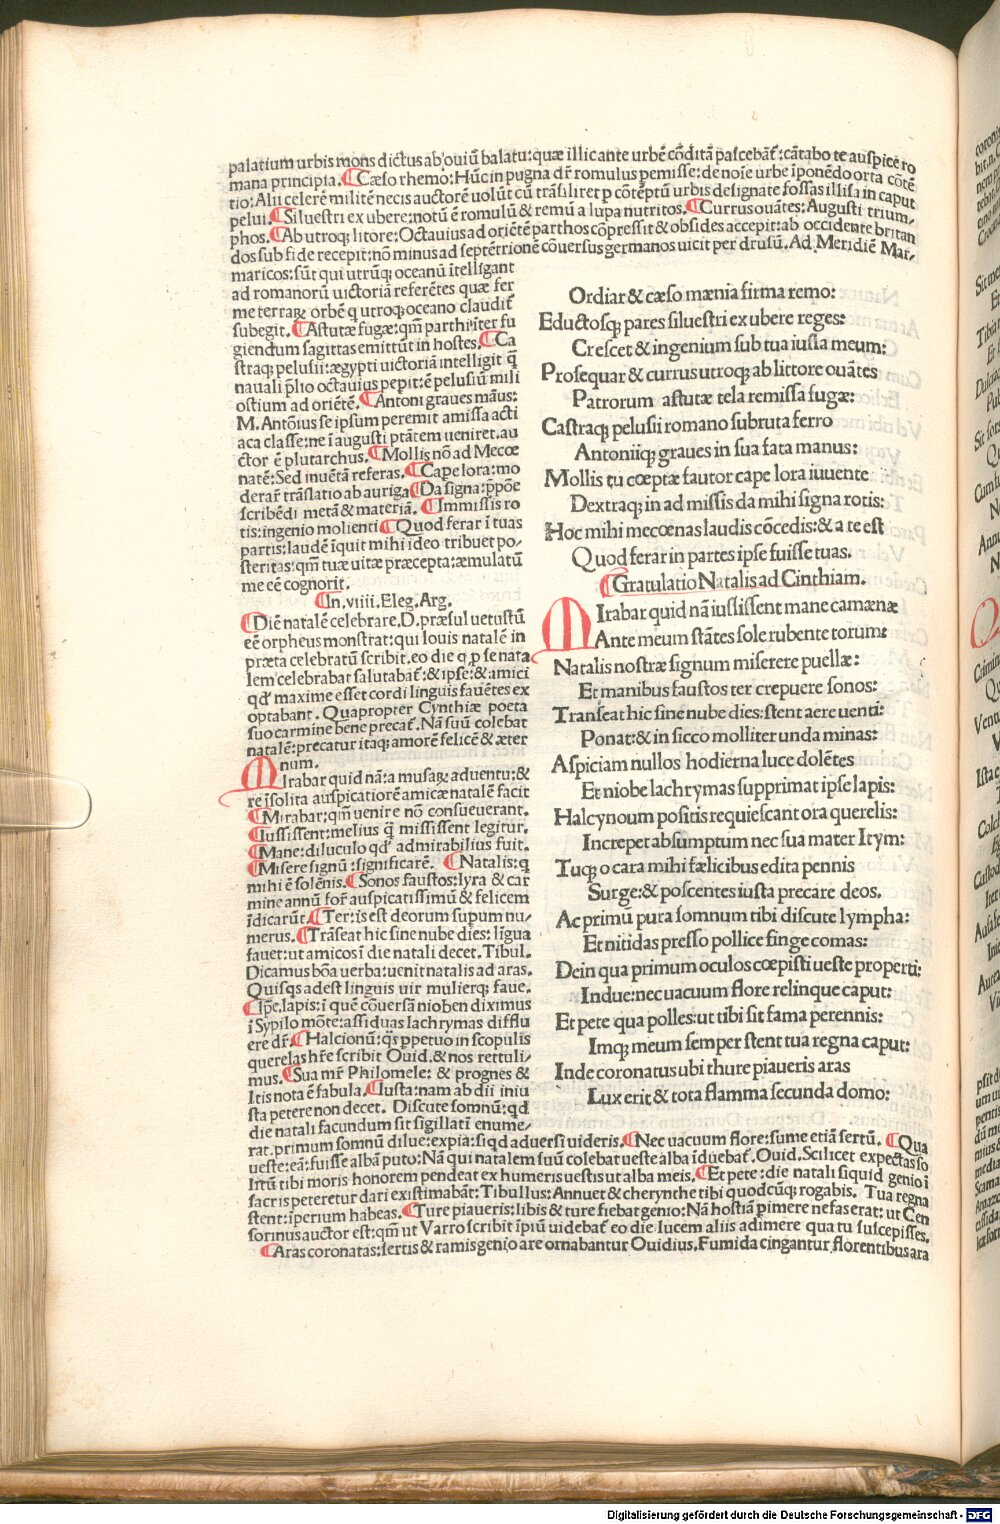 palatium urbis mons dictus ab ouiũ balatu: quæ illic ante urbẽ cõditã pascebãt: cãtabo te auspice ro
mana principia. ¶Cæso rhemo: Hũc in pugna dr̃ romulus pemisse: de noĩe urbe ĩponẽdo orta cõtẽ
tio: Alii celerẽ militẽ necis auctorẽ uolũt cũ trãsiliret p cõtẽptũ urbis designate fossas illisa in caput
pelui. ¶Siluestri ex ubere: notũ ẽ romulũ & remũ a lupa nutritos. ¶Currus ouãtes: Augusti trium-
phos. ¶Ab utroq; litore: Octauius ad oriẽtẽ parthos cõpressit & obsides accepit: ab occidente britan
dos sub fide recepit: nõ minus ad septẽtrionẽ cõuersus germanos uicit per drusũ. Ad Meridiẽ Mar-
maricos: sũt qui utrũq; oceanũ ĩtelligant
ad romanorũ uictoriã referẽtes quæ fer
me terraꝝ orbẽ q utroq; oceano claudit̃
subegit. ¶Astutæ fugæ: qm̃ parthi iter fu
giendum sagittas emittũt in hostes. ¶Ca
straq; pelusii: ægypti uictoriã intelligit q̃
nauali p̃lio octauius pepit: ẽ pelusiũ mili
ostium ad oriẽtẽ. ¶Antoni graues mãus:
M. Antõius se ipsum peremit amissa acti
aca classe: ne ĩ augusti ptãtem ueniret. au
ctor ẽ plutarchus. ¶Mollis nõ ad Mecœ
natẽ: Sed inuẽtã referas. ¶Cape lora: mo
derar̃ trãslatio ab auriga ¶Da signa: p̃põe
scribẽdi metã & materiã. ¶Immissis ro
tis: ingenio molienti ¶Quod ferar ĩ tuas
partis: laudẽ ĩquit mihi ideo tribuet po-
steritas: qm̃ tuæ uitæ præcepta: æmulatũ
me eẽ cognorit.
¶In. viiii. Eleg. Arg.
¶Diẽ natalẽ celebrare. D. præsul uetustũ
eẽ orpheus monstrat: qui Iouis natalẽ in
præta celebratũ scribit. eo die q p se nata
lem celebrabat salutabãt: & ipse: & amici
qd' maxime esset cordi linguis fauẽtes ex
optabant. Quapropter Cynthiæ poeta
suo carmine bene precat̃. Nã suũ colebat
natalẽ: precatur itaq; amorẽ felicẽ & æter
num.
MIrabar quid nã: a musaꝝ aduentu: &
re ĩsolita auspicatiorẽ amicæ natalẽ facit
¶Mirabar: qm̃ uenire nõ consueuerant.
¶Iussissent: melius q̃ mississent legitur.
¶Mane: diluculo qd' admirabilius fuit.
¶Misere signũ: significarẽ. ¶Natalis: q
mihi ẽ solẽnis. ¶Sonos faustos: lyra & car
mine annũ for̃ auspicatissimũ & felicem
ĩdicarũt. ¶Ter: is est deorum supum nu-
merus. ¶Trãseat hic sine nube dies: lĩgua
fauet: ut amicos ĩ die natali decet. Tibul.
Dicamus bõa uerba: uenit natalis ad aras.
Quisqs adest linguis uir mulierq; faue.
¶Ipse. lapis: ĩ quẽ cõuersã nioben diximus
ĩ Sypilo mõte: assiduas lachrymas difflu
ere dr̃. ¶Halcionũ: qs ppetuo in scopulis
querelas hr̃e scribit Ouid. & nos rettuli-
mus. ¶Sua mr̃ Philomele: & prognes &
Itis nota ẽ fabula. ¶Iusta: nam ab dii iniu
sta petere non decet. Discute somnũ: qd
die natali facundum sit sigillatĩ enume-
rat. primum somnũ dilue: expia: siqd aduersi uideris. ¶Nec uacuum flore: sume etiã sertũ. ¶Qua
ueste: eã: fuisse albã puto: Nã qui natalem suũ colebat ueste alba ĩduebat̃. Ouid. Scilicet expectas so
litũ tibi moris honorem pendeat ex humeris uestis ut alba meis. ¶Et pete: die natali siquid genio ĩ
sacris peteretur dari existimabãt: Tibullus: Annuet & cherynthe tibi quodcũq; rogabis. Tua regna
stent: ĩperium habeas. ¶Ture piaueris: libis & ture fiebat genio: Nã hostiã pimere nefas erat: ut Cen
sorinus auctor est: qm̃ ut Varro scribit ĩpiũ uidebat̃ eo die lucem aliis adimere qua tu suscepisses.
¶Aras coronatas: sertis & ramis genio are ornabantur Ouidius. Fumida cingantur florentibus ara
Ordiar & cæso mœnia firma remo:
Eductosq; pares siluestri ex ubere reges:
Crescet & ingenium sub tua iussa meum:
Prosequar & currus utroq; ab littore ouãtes
Patrorum astutæ tela remissa fugæ:
Castraq; pelusii romano subruta ferro
Antoniiq; graues in sua fata manus:
Mollis tu cœptæ fautor cape lora iuuente
Dextraq; in ad missis da mihi signa rotis:
Hoc mihi mecœnas laudis cõcedis: & a te est
Quod ferar in partes ipse fuisse tuas.
¶Gratulatio Natalis ad Cinthiam.
MIrabar quid nã iussissent mane camœnæ
Ante meum stãtes sole rubente torum:
Natalis nostræ signum miserere puellæ:
Et manibus faustos ter crepuere sonos:
Trãseat hic sine nube dies: stent aere uenti:
Ponat: & in sicco molliter unda minas:
Aspiciam nullos hodierna luce dolẽtes
Et niobe lachrymas supprimat ipse lapis:
Halcynoum positis requiescant ora querelis:
Increpet absumptum nec sua mater Itym:
Tuq; o cara mihi fælicibus edita pennis
Surge: & poscentes iusta precare deos.
Ac primũ pura somnum tibi discute lympha:
Et nitidas presso pollice finge comas:
Dein qua primum oculos cœpisti ueste properti:
Indue: nec uacuum flore relinque caput:
Et pete qua polles: ut tibi sit fama perennis:
Imq; meum semper stent tua regna caput:
Inde coronatus ubi thure piaueris aras
Lux erit & tota flamma secunda domo:
Digitalisierung gefördert durch die Deutsche Forschungsgemeinschaft - DFG